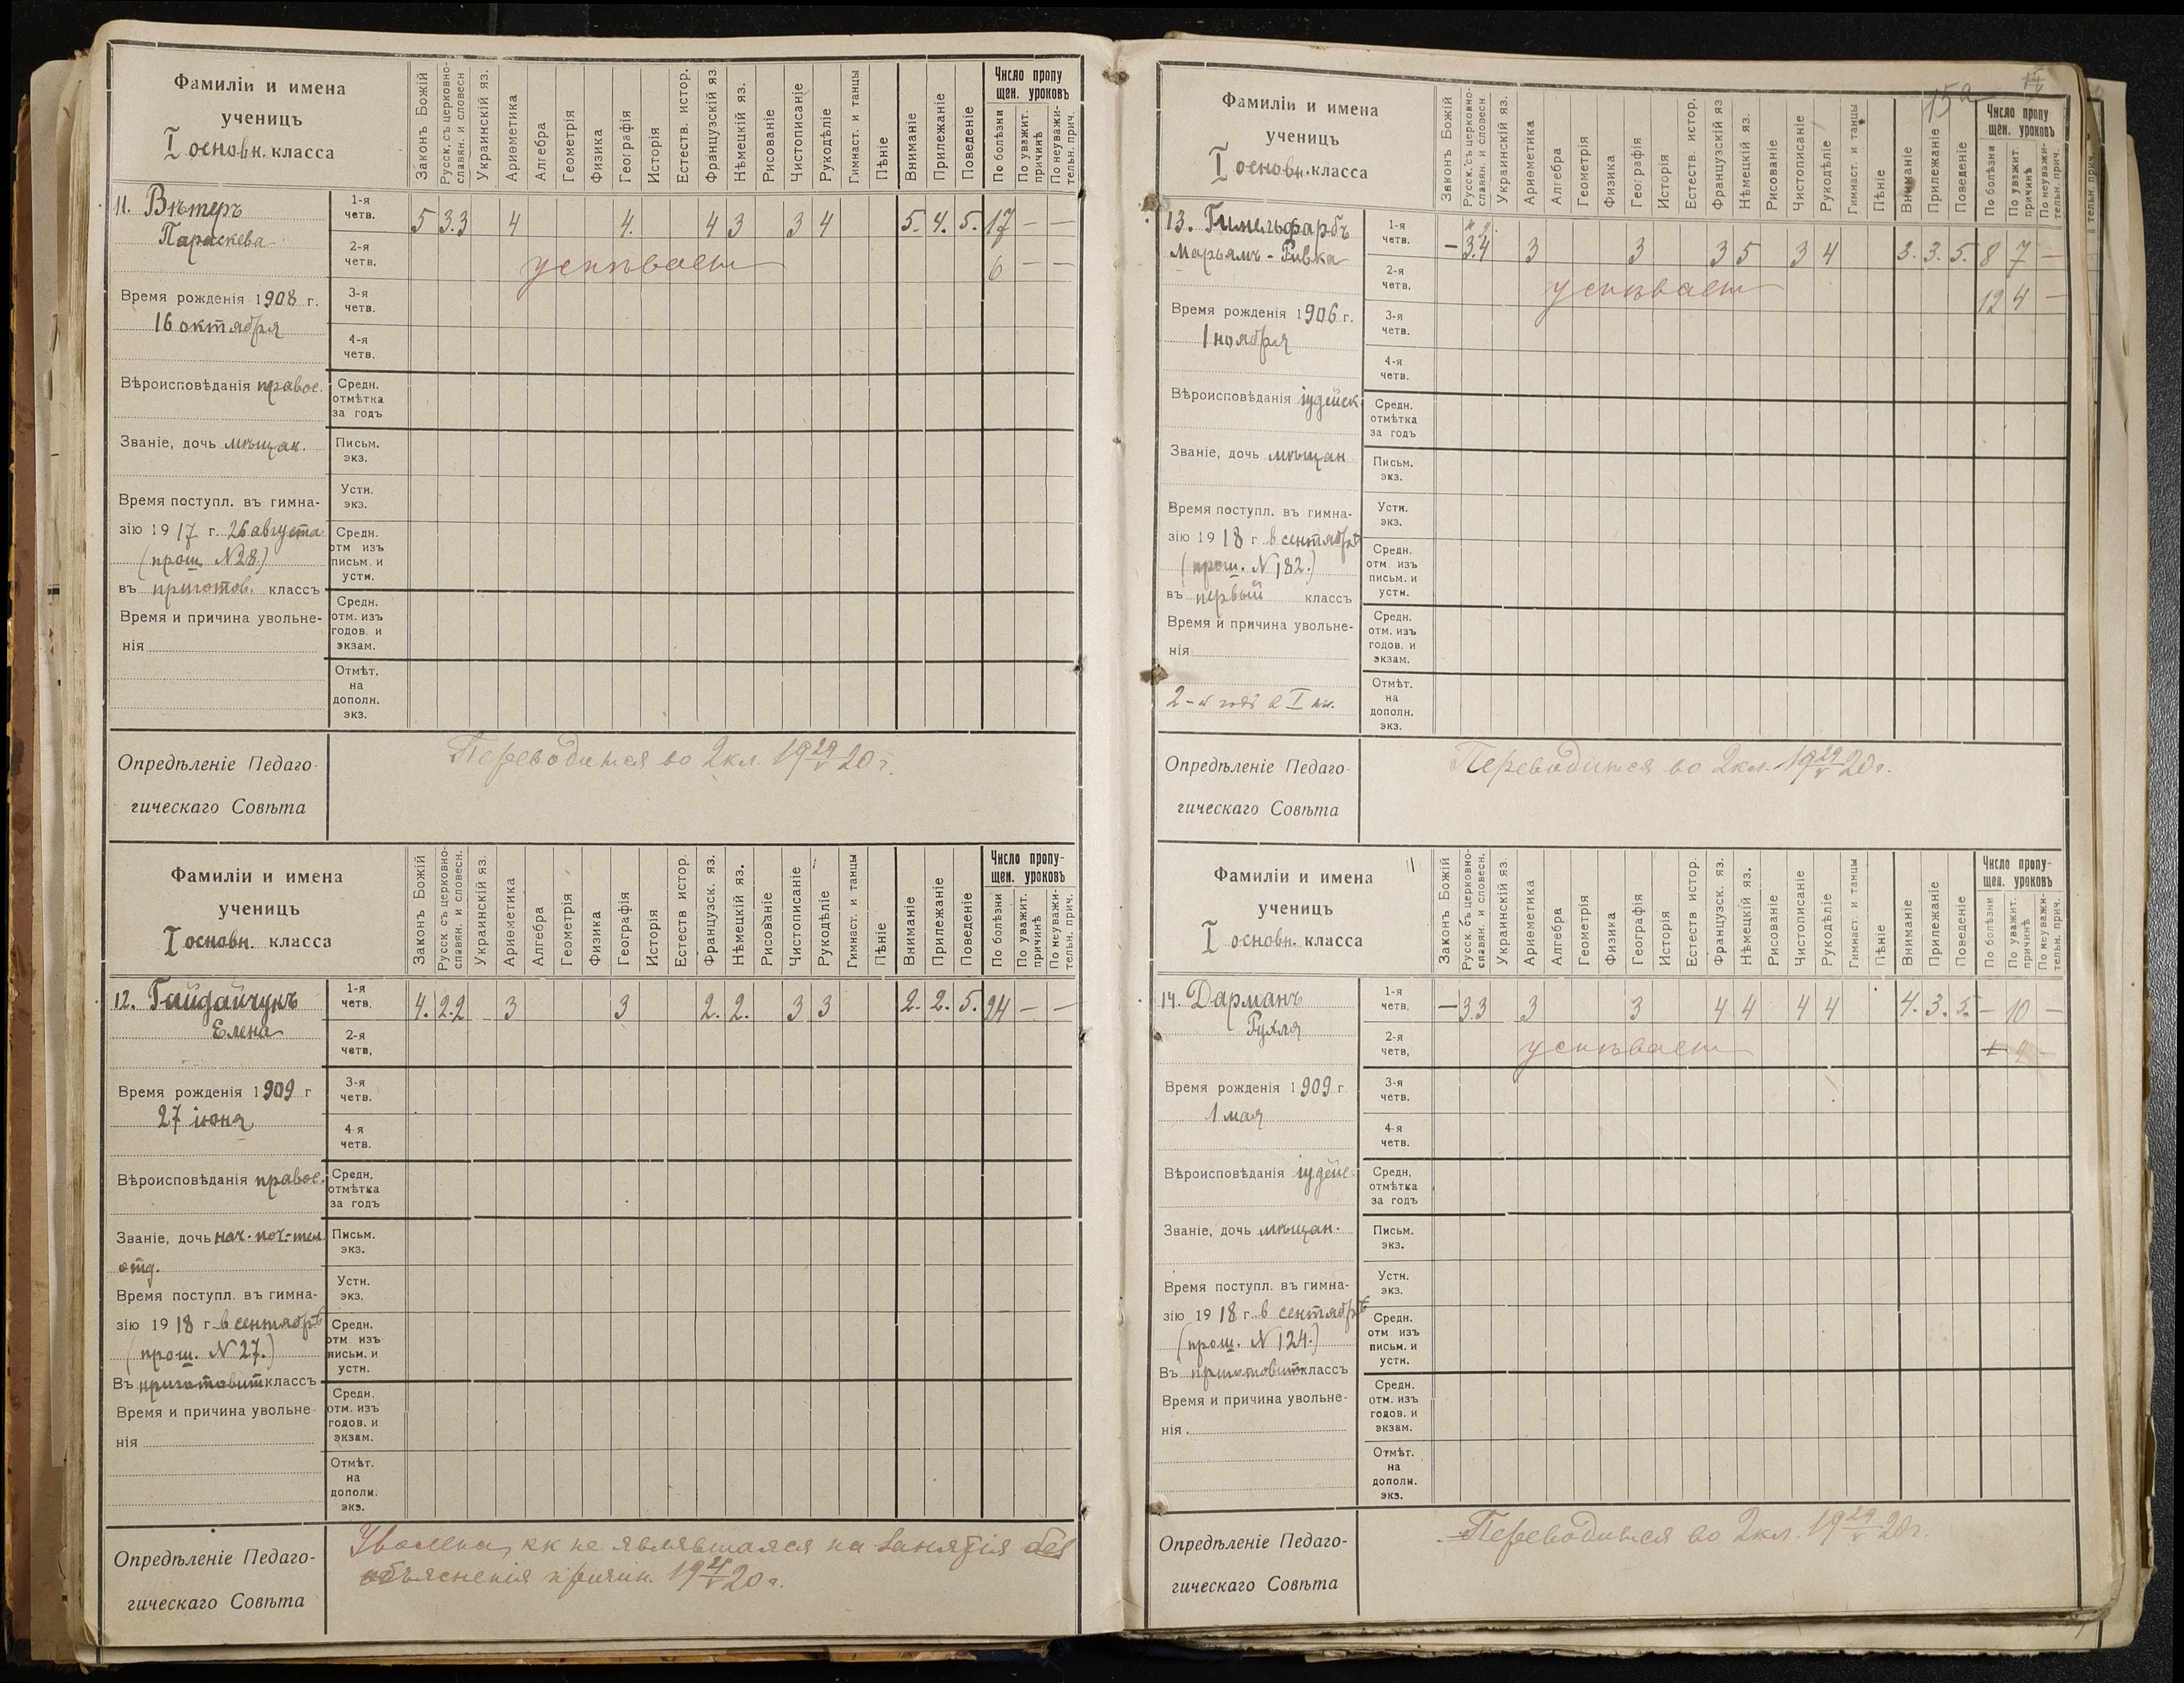 Фамиліи и имена
ученицъ
I основн. класса
Законъ Божій
Русск. съ церковно-
славян. и словесн
Украинскій яз.
Ариѳметика
Алгебра
Геометрія
Физика
Географія
Исторія
Естеств. истор.
Французскій яз
Нѣмецкій яз.
Рисованіе
Чистописаніе
Рукодѣліе
Гимнаст. и танцы
Пѣніе
Вниманіе
Прилежаніе
Поведеніе
Число пропу
щен. уроковъ
По болѣзни
По уважит.
причинѣ
По неуважи-
тельн. прич.
11. Вѣтеръ
Параскева
1-я
четв.
5 3.3 4 4. 4 3 3 4 5. 4. 5. 17 — —
2-я
четв.
успѣваетъ 6 — —
Время рожденія 1908 г.
16 октября
3-я
четв.
4-я
четв.
Вѣроисповѣданія правос.
Средн.
отмѣтка
за годъ
Званіе, дочь мѣщан.
Письм.
экз.
Время поступл. въ гимна-
зію 1917 г. 26 августа
(прош. N 28.)
въ приготов. классъ
Устн.
экз.
Средн.
отм изъ
письм. и
устн.
Время и причина увольне-
нія
Средн.
отм. изъ
годов. и
экзам.
Отмѣт.
на
дополн.
экз.
Опредѣленіе Педаго-
гическаго Совѣта
Переводится во 2 кл. 19 29/V 20 г.
Фамиліи и имена
ученицъ
I основн. класса
Законъ Божій
Русск. съ церковно-
славян. и словесн.
Украинскій яз.
Ариѳметика
Алгебра
Геометрія
Физика
Географія
Исторія
Естеств истор.
Французск. яз.
Нѣмецкій яз.
Рисованіе
Чистописаніе
Рукодѣліе
Гимнаст. и танцы
Пѣніе
Вниманіе
Прилежаніе
Поведеніе
Число пропу-
щен. уроковъ
По болѣзни
По уважит.
причинѣ
По неуважи-
тельн. прич.
12. Гайдайчукъ
Елена
1-я
четв.
4. 2.2 3 3 2. 2. 3 3 2. 2. 5. 24 — —
2-я
четв,
Время рожденія 1909 г
27 іюня
3-я
четв.
4-я
четв.
Вѣроисповѣданія правос.
Средн,
отмѣтка
за годъ
Званіе, дочь нач. поч-тел
отд.
Письм.
экз.
Время поступл. въ гимна-
зію 1918 г. в сентябрѣ
(прош. N 27.)
Въ приготовит классъ
Устн.
экз.
Средн.
отм изъ
письм. и
устн.
Время и причина увольне
нія
Средн.
отм. изъ
годов. и
экзам.
Отмѣт.
на
дополн.
экз.
Опредѣленіе Педаго-
гическаго Совѣта
Уволена, кк не являвшаяся на занятія без
объясненія причин. 19 21/V 20 г.
15а
Фамиліи и имена
ученицъ
I основн. класса
Законъ Божій
Русск. съ церковно-
славян. и словесн
Украинскій яз.
Ариѳметика
Алгебра
Геометрія
Физика
Географія
Исторія
Естеств. истор.
Французскій яз
Нѣмецкій яз.
Рисованіе
Чистописаніе
Рукодѣліе
Гимнаст. и танцы
Пѣніе
Вниманіе
Прилежаніе
Поведеніе
Число пропу
щен. уроковъ
По болѣзни
По уважит.
причинѣ
По неуважи-
тельн. прич.
13. Гимельфарбъ
Марьямъ-Ривка
1-я
четв.
— 3.4 3 3 3 5 3 4 3. 3. 5. 8 7 —
2-я
четв.
успѣваетъ 12 4 —
Время рожденія 1906 г.
1 ноября
3-я
четв.
4-я
четв.
Вѣроисповѣданія іудейск
Средн.
отмѣтка
за годъ
Званіе, дочь мѣщан
Письм.
экз.
Время поступл. въ гимна-
зію 1918 г в сентябрѣ
(прош. N 182.)
въ первый классъ
Устн.
экз.
Средн.
отм изъ
письм. и
устн.
Время и причина увольне-
нія
2-й годъ в I кл.
Средн.
отм. изъ
годов. и
экзам.
Отмѣт.
на
дополн.
экз.
Опредѣленіе Педаго-
гическаго Совѣта
Переводится во 2 кл. 19 29/V 20 г.
Фамиліи и имена
ученицъ
I основн. класса
Законъ Божій
Русск. съ церковно-
славян. и словесн.
Украинскій яз.
Ариѳметика
Алгебра
Геометрія
Физика
Географія
Исторія
Естеств истор.
Французск. яз.
Нѣмецкій яз.
Рисованіе
Чистописаніе
Рукодѣліе
Гимнаст. и танцы
Пѣніе
Вниманіе
Прилежаніе
Поведеніе
Число пропу-
щен. уроковъ
По болѣзни
По уважит.
причинѣ
По неуважи-
тельн. прич.
14. Дарманъ
Рухля
1-я
четв.
— 3.3 3 3 4 4 4 4 4. 3. 5. — 10 —
2-я
четв,
успѣваетъ
Время рожденія 1909 г
1 мая
3-я
четв.
4-я
четв.
Вѣроисповѣданія іудейс.
Средн,
отмѣтка
за годъ
Званіе, дочь мѣщан.
Письм.
экз.
Время поступл. въ гимна-
зію 1918 г. в сентябрѣ
(прош. N 124.)
Въ приготовит классъ
Устн.
экз.
Средн.
отм изъ
письм. и
устн.
Время и причина увольне-
нія
Средн.
отм. изъ
годов. и
экзам.
Отмѣт.
на
дополн.
экз.
Опредѣленіе Педаго-
гическаго Совѣта
Переводится во 2 кл. 19 29/V 20 г.